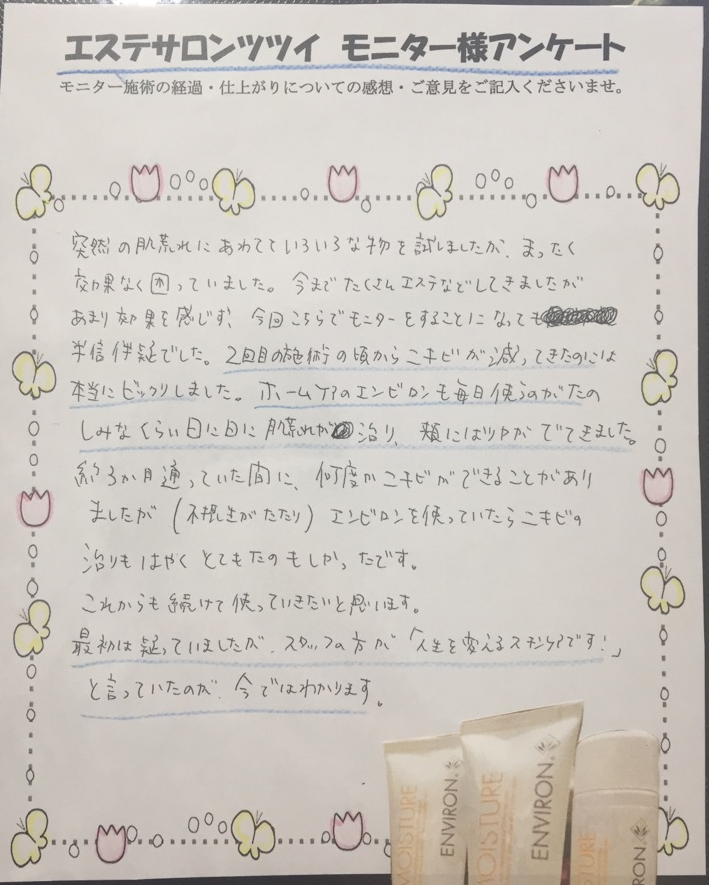 エステサロンツツイ モニター様アンケート
モニター施術の経過・仕上がりについての感想・ご意見をご記入くださいませ。
突然の肌荒れにあわてていろいろな物を試しましたが、まったく
効果なく困っていました。今までたくさんエステなどしてきましたが
あまり効果を感じず、今回こちらでモニターをすることになっても
半信伴疑でした。2回目の施術の頃からニキビが減ってきたのには
本当にビックリしました。ホームケアのエンビロンも毎日使うのがたの
しみなくらい日に日に肌荒れが治り、頬にはツヤがでてきました。
約3か月通っていた間に、何度かニキビができることがあり
ましたが(不規生がたたり)エンビロンを使っていたらニキビの
治りもはやくとてもたのもしかったです。
これからも続けて使っていきたいと思います。
最初は疑っていましたが、スタッフの方が「人生を変えるスキンケアです!」
と言っていたのが、今ではわかります。
MOISTURE
ENVIRON®
MOISTURE
ENVIRON®
TURE
RON®